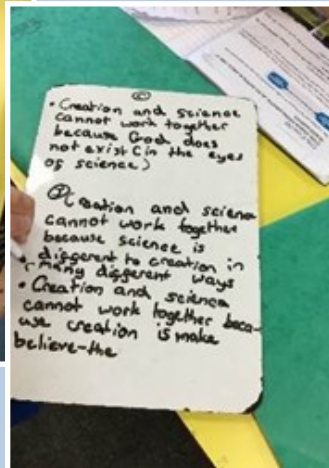 ©
• Creation and science
cannot work together
because God does
not exist (in the eyes
of science)
Creation and science
cannot work together
because science is
different to creation in
many different ways
• Creation and science
cannot work together beca-
use creation is make
believe-the